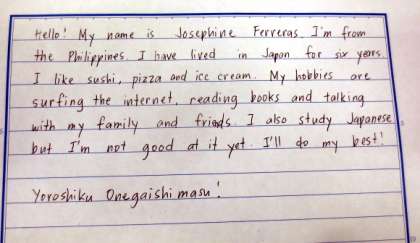 Hello! My name is Josephine Ferreras. I'm from
the Philippines. I have lived in Japan for six years.
I like sushi, pizza and ice cream. My hobbies are
surfing the internet, reading books and talking
with my family and friends. I also study Japanese
but I'm not good at it yet. I'll do my best!
Yoroshiku Onegaishimasu!